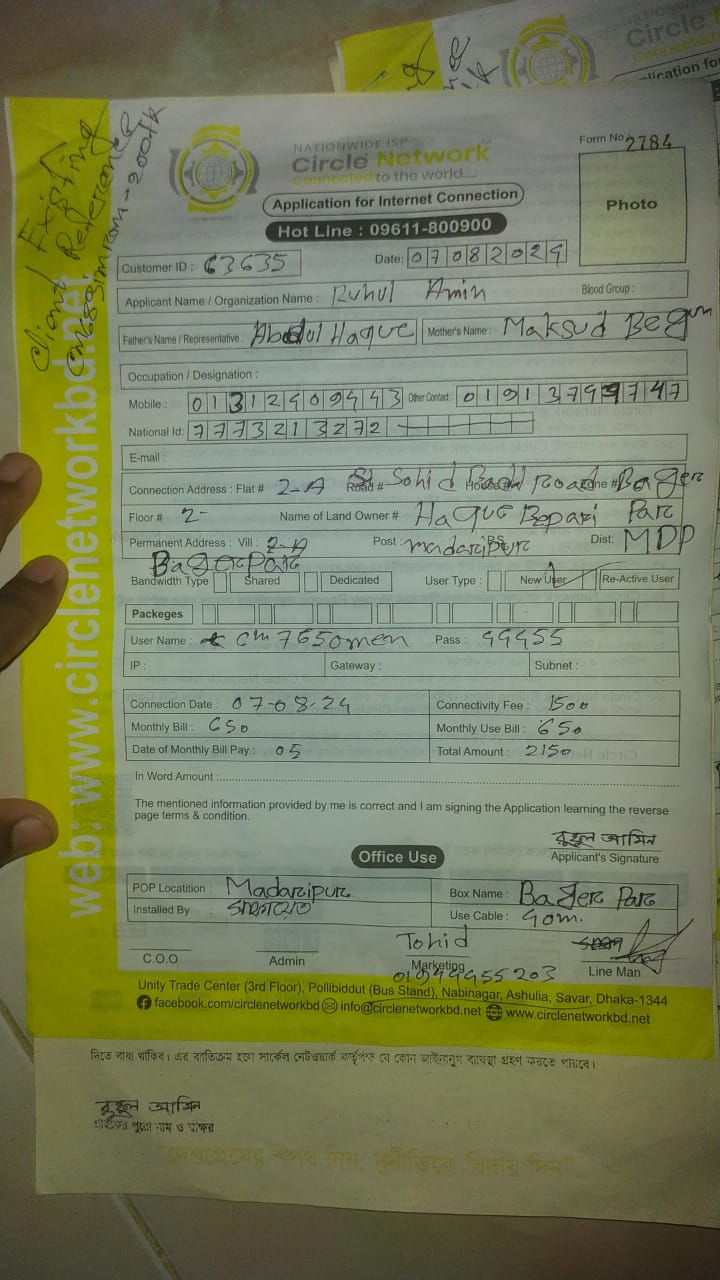 Client Existing
Reference
NATIONWIDE ISP
Circle Network
Connected to the world....
Application for Internet Connection
Hot Line : 09611-800900
Form No. 2784
Photo
Customer ID : C3635
Date: 07082024
Applicant Name / Organization Name : Ruhul Amin Blood Group :
Father's Name / Representative : Abdul Haque Mother's Name : Maksud Begum
Occupation / Designation :
Mobile : Other Contact :
National Id: 7773213272
E-mail :
Connection Address : Flat # 2-A Road # Sohid House # Road Zone # Bager
Floor # 2- Name of Land Owner # Haque Bepari Parc
Permanent Address : Vill : 2-A Post : madaripur PS Dist: MDP
Bager Parc
Bandwidth Type Shared Dedicated User Type : New User Re-Active User
Packeges
User Name : cm7650men Pass : 44455
IP : Gateway : Subnet :
Connection Date : 07-08-24 Connectivity Fee : 1500
Monthly Bill : 650 Monthly Use Bill : 650
Date of Monthly Bill Pay : 05 Total Amount : 2150
In Word Amount :
The mentioned information provided by me is correct and I am signing the Application learning the reverse
page terms & condition.
রুহুল আমিন
Applicant's Signature
Office Use
POP Locatition : Madaripur Box Name : Bager Parc
Installed By : Use Cable : 40m.
Tohid
C.O.O Admin Marketing Line Man
Unity Trade Center (3rd Floor), Pollibiddut (Bus Stand), Nabinagar, Ashulia, Savar, Dhaka-1344
facebook.com/circlenetworkbd info@circlenetworkbd.net www.circlenetworkbd.net
web: www.circlenetworkbd.net
দিতে বাধ্য থাকিব। এর ব্যতিক্রম হলে সার্কেল নেটওয়ার্ক কর্তৃপক্ষ যে কোন আইনানুগ ব্যবস্থা গ্রহণ করতে পারবে।
রুহুল আমিন
গ্রাহকের পুরো নাম ও স্বাক্ষর
"দেশপ্রেমের শপথ নিন, দুর্নীতিকে বিদায় দিন"